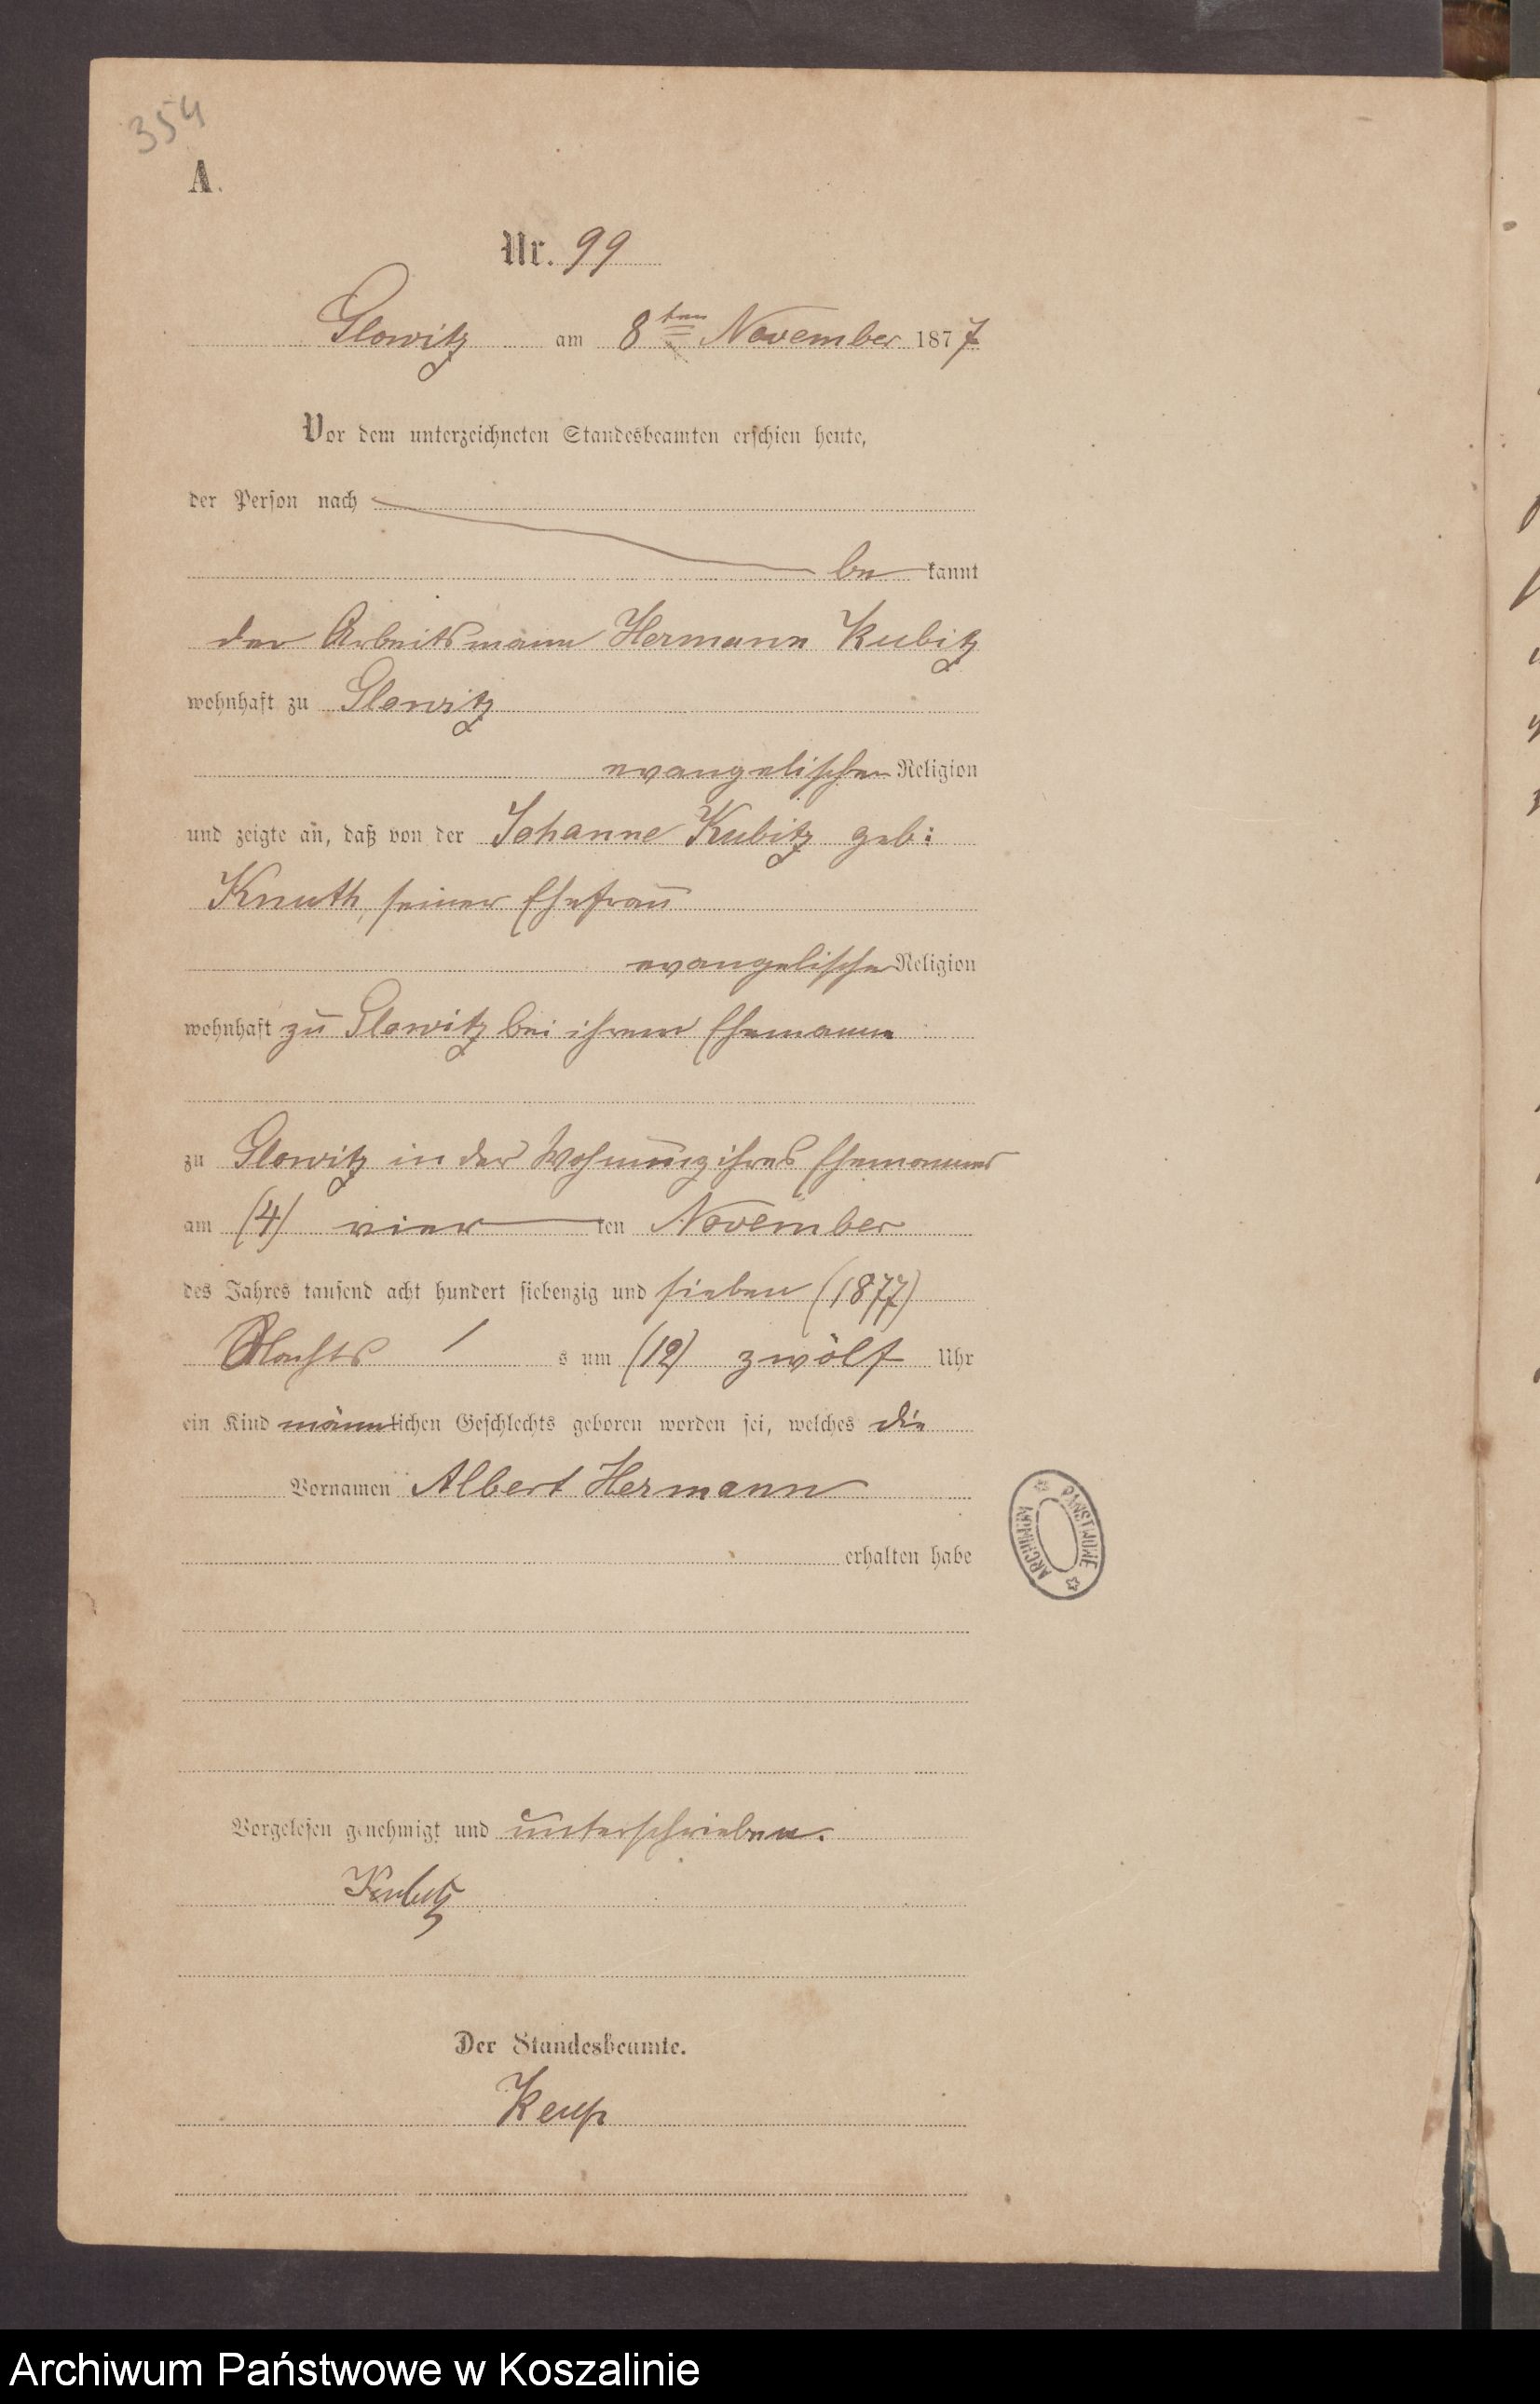 354
A.
Nr. 99
Glowitz am 8ten November 1877
Vor dem unterzeichneten Standesbeamten erschien heute,
der Person nach
be kannt
der Arbeitsmann Hermann Kubitz
wohnhaft zu Glowitz
evangelischer Religion
und zeigte an, daß von der Johanne Kubitz geb:
Knuth, seiner Ehefrau
evangelischer Religion
wohnhaft zu Glowitz bei ihrem Ehemanne
zu Glowitz in der Wohnung ihres Ehemannes
am (4) vier ten November
des Jahres tausend acht hundert siebenzig und sieben (1877)
Nachts s um (12) zwölf Uhr
ein Kind männlichen Geschlechts geboren worden sei, welches die
Vornamen Albert Hermann
erhalten habe
ARCHIWUM PAŃSTWOWE
Vorgelesen genehmigt und unterschrieben.
Kubitz
Der Standesbeamte.
Keup
Archiwum Państwowe w Koszalinie